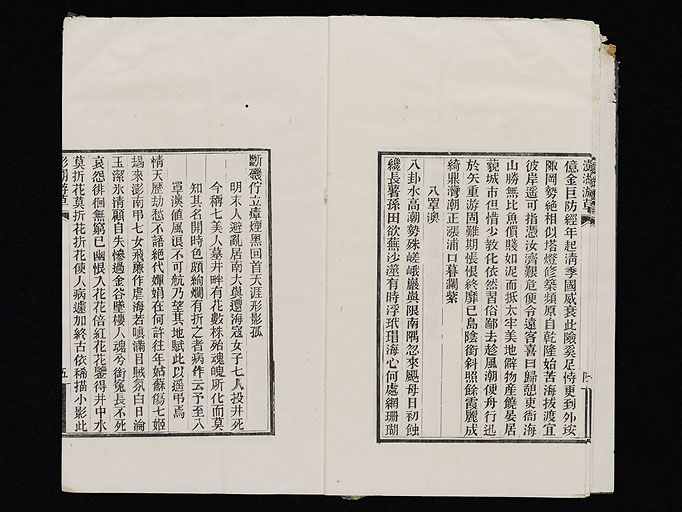 億金巨防經年起淸季國威衰此險奚足恃更到外垵
陬岡勢絶相似塔燈修築頻原自乾隆始苦海拔渡宜
彼岸遥可指憑汝濟艱危便令遠客喜曰歸憩吏衙海
山勝無比魚價賤如泥而抵太牢美地僻物產饒晏居
藐城市但惜少敎化依然習俗鄙去趁風潮便舟行迅
於矢重游固難期悵恨終靡已島陰銜斜照餘霞麗成
綺鼎灣潮正漲浦口暮瀾紫
八罩澳
八卦水高潮勢殊嵯峨巖與限南隅忽來颶母日初蝕
幾長薯孫田欲蕪沙瀣有時浮玳瑁海心何處網珊瑚
斷磯佇立瘴煙黑回首天涯形影孤
明末人避亂居南大嶼遭海寇女子七人投井死
今稱七美人墓井畔有花數株殆魂魄所化而莫
知其名開時色頗絢爛有折之者病作云予至八
罩澳値風浪不可航乃望其地賦此以遥弔焉
情天歷劫愁不語絶代嬋娟在何許往年姑蘇傷七姬
朅來澎南弔七女飛廉作虐海若嗔滿目賊氛白日淪
玉潔氷淸顧自失慘過金谷墜樓人魂兮銜寃長不死
哀怨徘徊無窮已幽恨入花花倍紅花花鑒得井中水
莫折花莫折花折花使人病遽加終古依稀描小影此
五